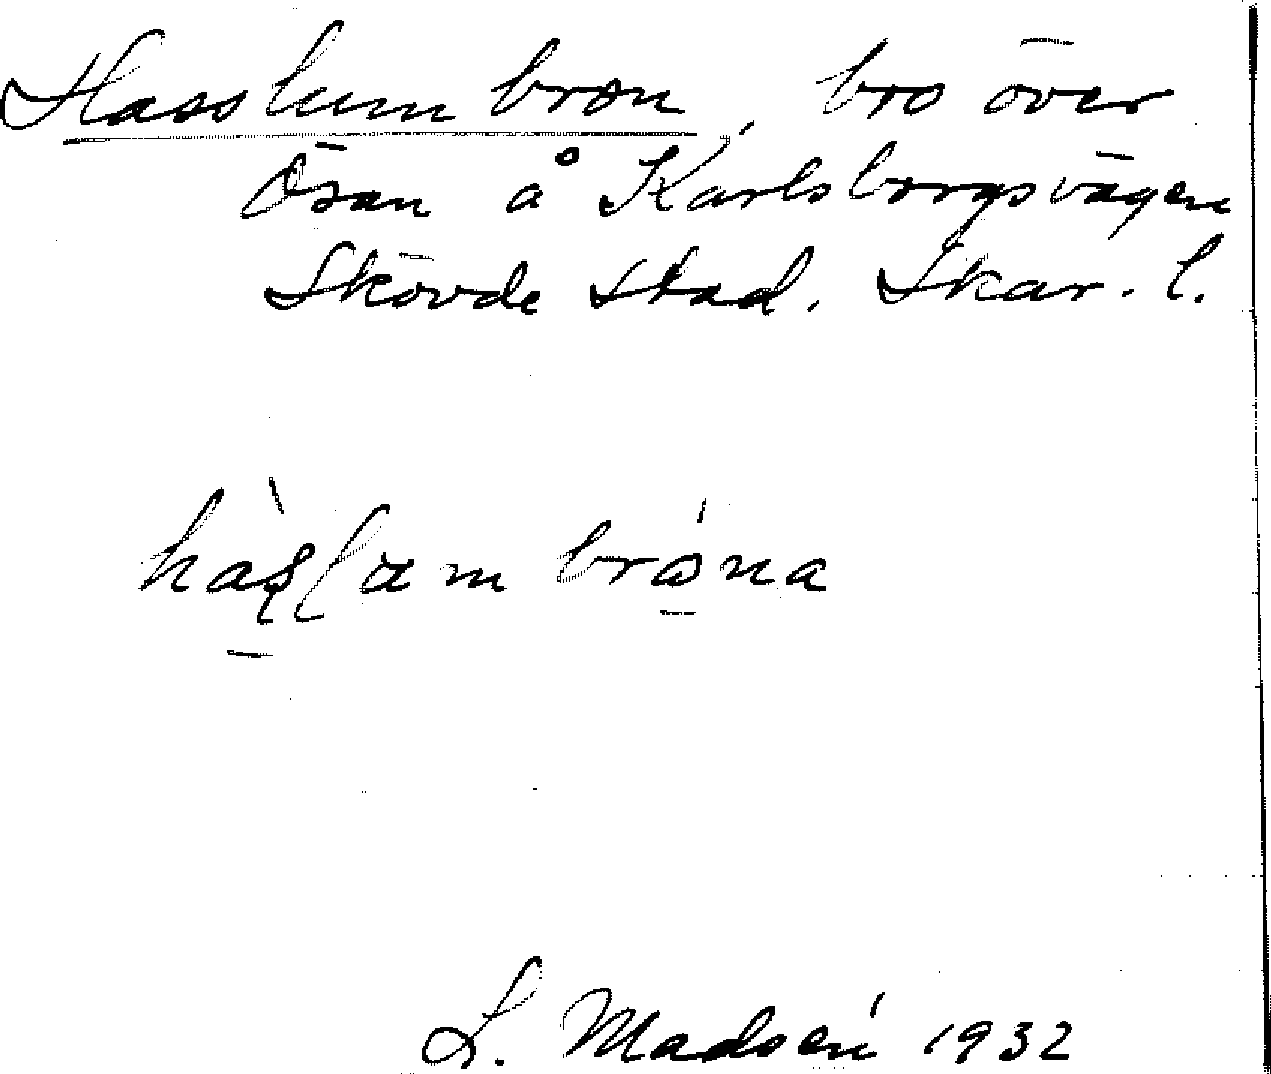 Hasslum bron, bro över
Ösan å Karlsborgsvägen
Skövde stad. Skar. l.
bróna
L. Madsén 1932